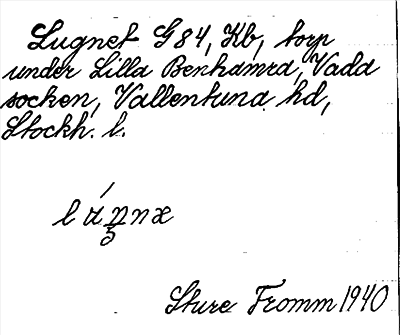 Lugnet G84, Kb, torp
under Lilla Benhamra, Vada
socken, Vallentuna hd,
Stockh. l.
Sture Fromm 1940